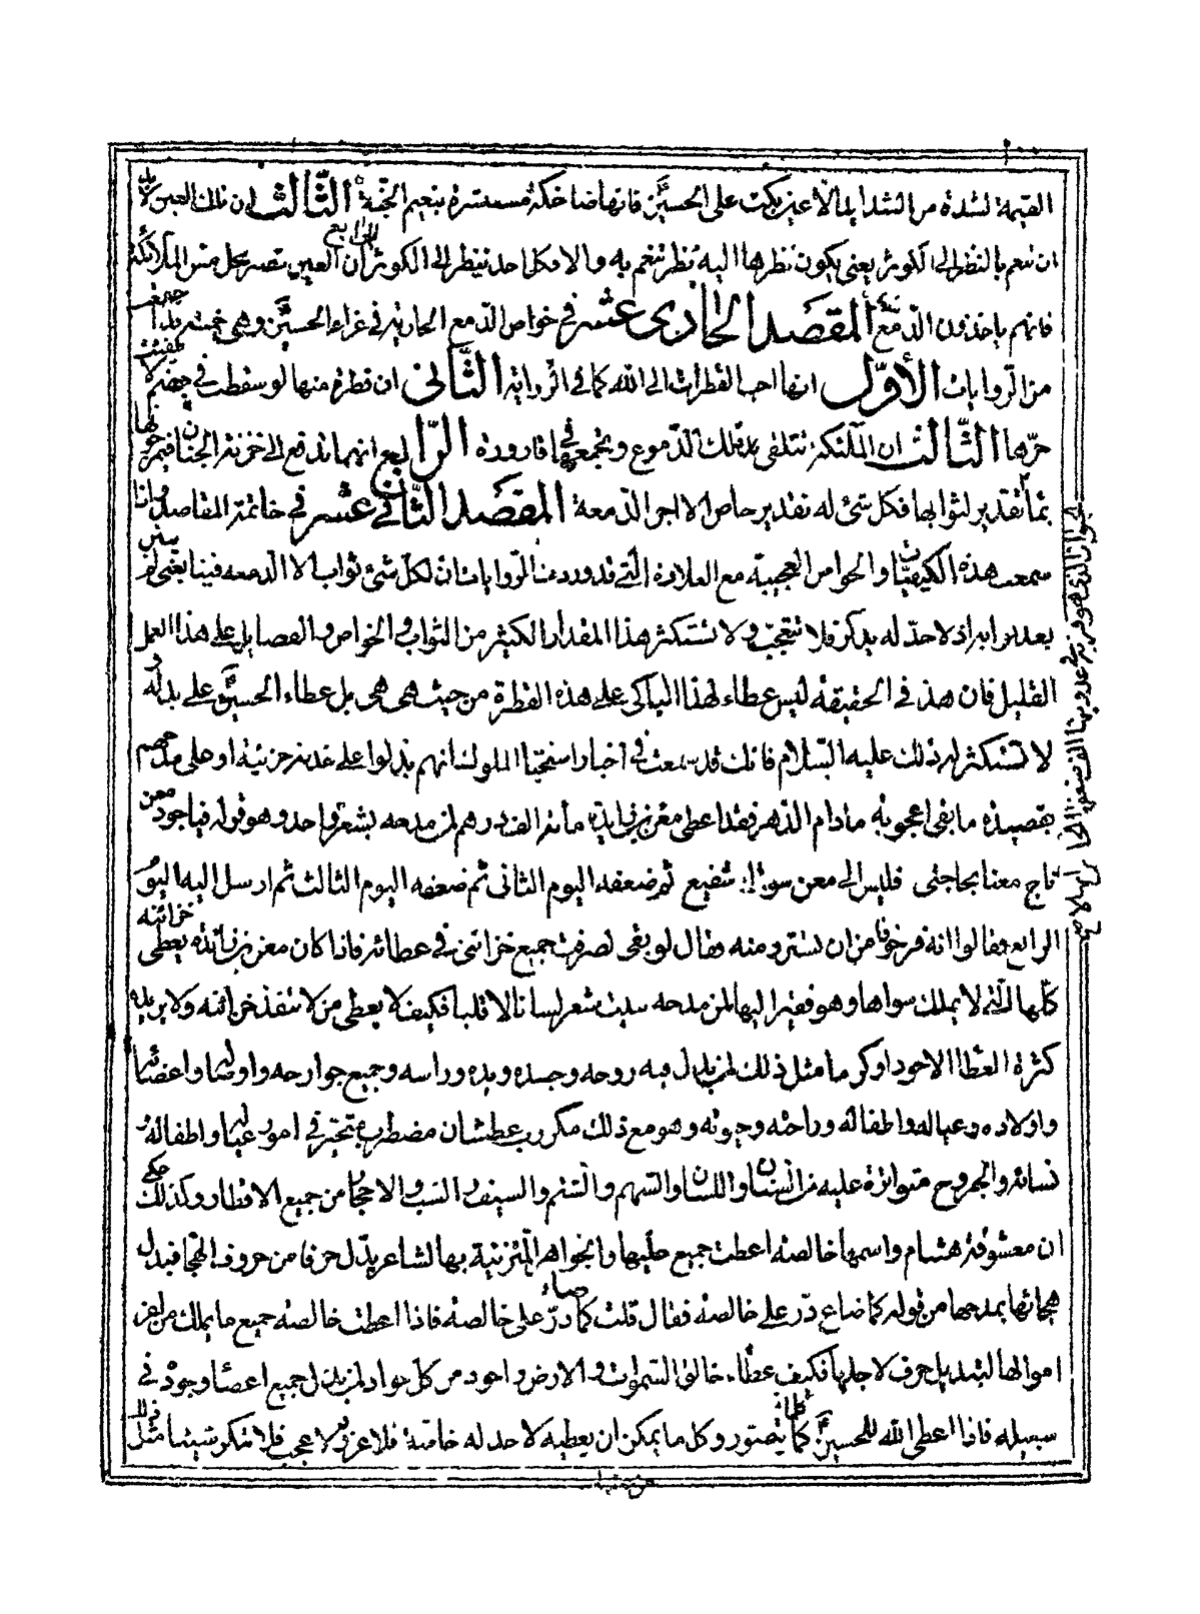 القيمة لشدة من الشدايد الا عين بكت على الحسين فانها ضاحكة مستبشرة بنعيم الجنة الثالث ان تلك العين لابد
ان تنعم بالنظر الى الكوثر يعنى يكون نظرها اليه نظر تنعم به والا فكل احد ينظر الى الكوثر الرابع ان العين تصير محل مس الملائكة
فانهم ياخذون الدمع منها المقصد الحادى عشر فى خواص الدمع الجارية فى عزاء الحسين وهى خمسة
من الروايات الأول انها احب القطرات الى الله كما فى الرواية الثانى ان قطرة منها لو سقطت فى جهنم لاطفئت
حرها الثالث ان الملئكة تتلقى تلك الدموع وتجمعها فى قارورة الرابع انها تدفع الى خزنة الجنان
تقدير لثوابها فكل شئ له تقدير خاص الا اجر الدمعة المقصد الثانى عشر فى خاتمة المقاصد واذا
سمعت هذه الكيفيات والخواص العجيبة مع العلاوة التى قد وردت الروايات ان لكل شئ ثواب الا الدمعه فينا يعنى لو
يعد ايراد لا حد له يذكر فلا تتعجب ولا تستكثر هذا المقدار الكثير من الثواب والخواص والفضايل على هذا العمل
القليل فان هذا فى الحقيقة ليس عطاء لهذا الباكى على هذه القطرة من حيث هى هى بل عطاء الحسين على بذله
لا تستكثر له ذلك عليه السلام فانك قد سمعت فى اخبار اسخياء الملوك انهم بذلوا على خدمة جزئية او على مدحهم
بقصيدة ما بقى اعجوبة مادام الدهر فقد اعطى معن بن زايدة مائة الف درهم لمن مدحه بشعر واحد وهو قوله فيا جود معن
ناج معنا بحاجتى فليس الى معن سواك شفيع ثم ضعفه اليوم الثانى ثم ضعفه اليوم الثالث ثم ارسل اليه اليوم
الرابع فقالوا انه فر خوفا من ان تسترد منه فقال لو بقى لصرفت جميع خزائنى فى عطائه فاذا كان معن بن زائدة يعطى خزائنه
كلها التى لا يملك سواها وهو فقير اليها لمن مدحه ببيت شعر لسانا لا قلبا فكيف لا يعطى من لا تنفذ خزائنه ولا يزيده
كثرة العطا الا جودا وكرما مثل ذلك لمن بذل فيه روحه وجسده ويده وراسه وجميع جوارحه واوصاله واعضائه
واولاده وعياله واطفاله وراحته وحيوته وهو مع ذلك مكروب عطشان مضطرب متحير فى امور عياله واطفاله و
نسائه والجروح متواترة عليه من السنان واللسان والسهم والشتم والسيف والسب والاحجار من جميع الاقطار وكذلك حكى
ان معشوقة هشام واسمها خالصة اعطت جميع حليها والجواهر المتزينة بها لشاعر بدل حرفا من حروف الهجا فبدل
هجائها بمدحها من قوله كما ضاع در على خالصه فقال قلت كما ضاء در على خالصة فاذا اعطت خالصة جميع ما يملك من اعز
اموالها لتبديل حرف لاجلها فكيف عطاء خالق السموات والارض واجود من كل جواد لمن بذل جميع اعضاء وجوده فى
سبيله فاذا اعطى الله للحسين كلما يتصور وكل ما يمكن ان يعطيه لاحد له خاصة فلا غرو ولا عجب فلا تنكر شيئا